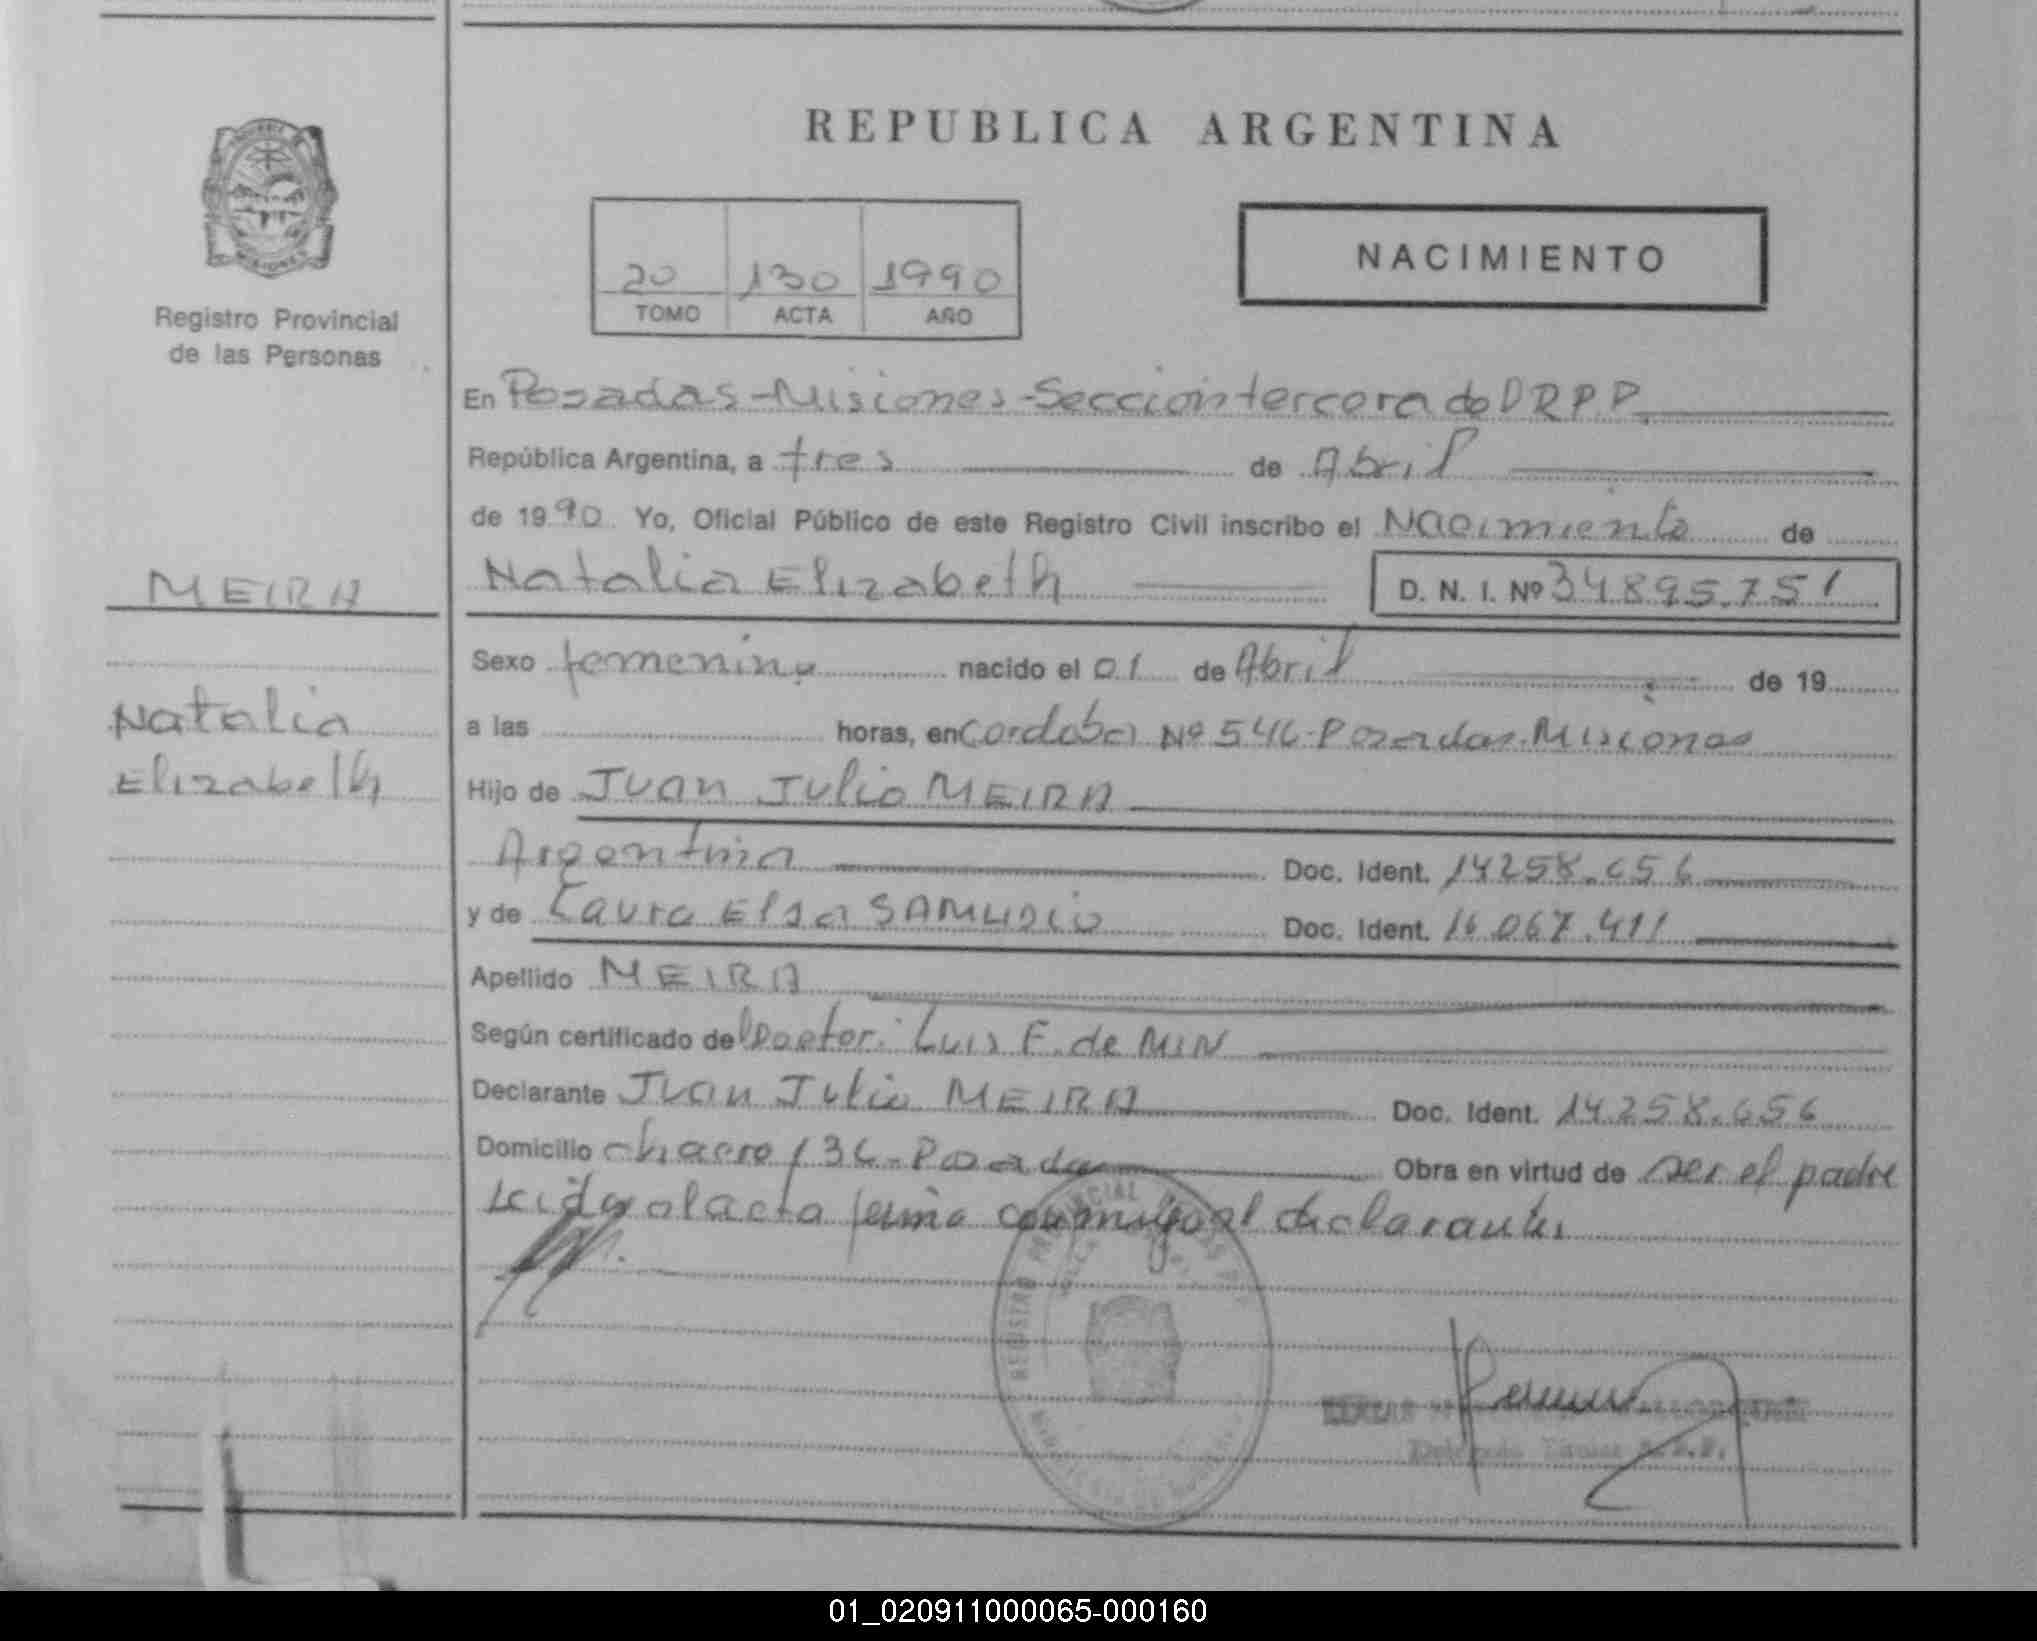 REPUBLICA ARGENTINA
MISIONES
Registro Provincial
de las Personas
20 130 1990
TOMO ACTA AÑO
NACIMIENTO
En Posadas-Misiones-Seccion tercera de DRPP
República Argentina, a tres de Abril
de 1990 Yo, Oficial Público de este Registro Civil inscribo el Nacimiento de
Natalia Elizabeth D. N. I. Nº 34895.751
MEIRA
Natalia
Elizabeth
Sexo femenino nacido el 01 de Abril de 19
a las horas, en Cordoba Nº 546-Posadas-Misiones
Hijo de Juan Julio MEIRA
Argentina Doc. Ident. 14258.656
y de Laura Elsa SAMUDIO Doc. Ident. 16.067.411
Apellido MEIRA
Según certificado del Doctor: Luis F. de MIN
Declarante Juan Julio MEIRA Doc. Ident. 14.258.656
Domicilio chacra 136-Posadas Obra en virtud de ser el padre
Leida el acta firma conmigo el declarante
REGISTRO PROVINCIAL
Delegada Técnica
01_020911000065-000160